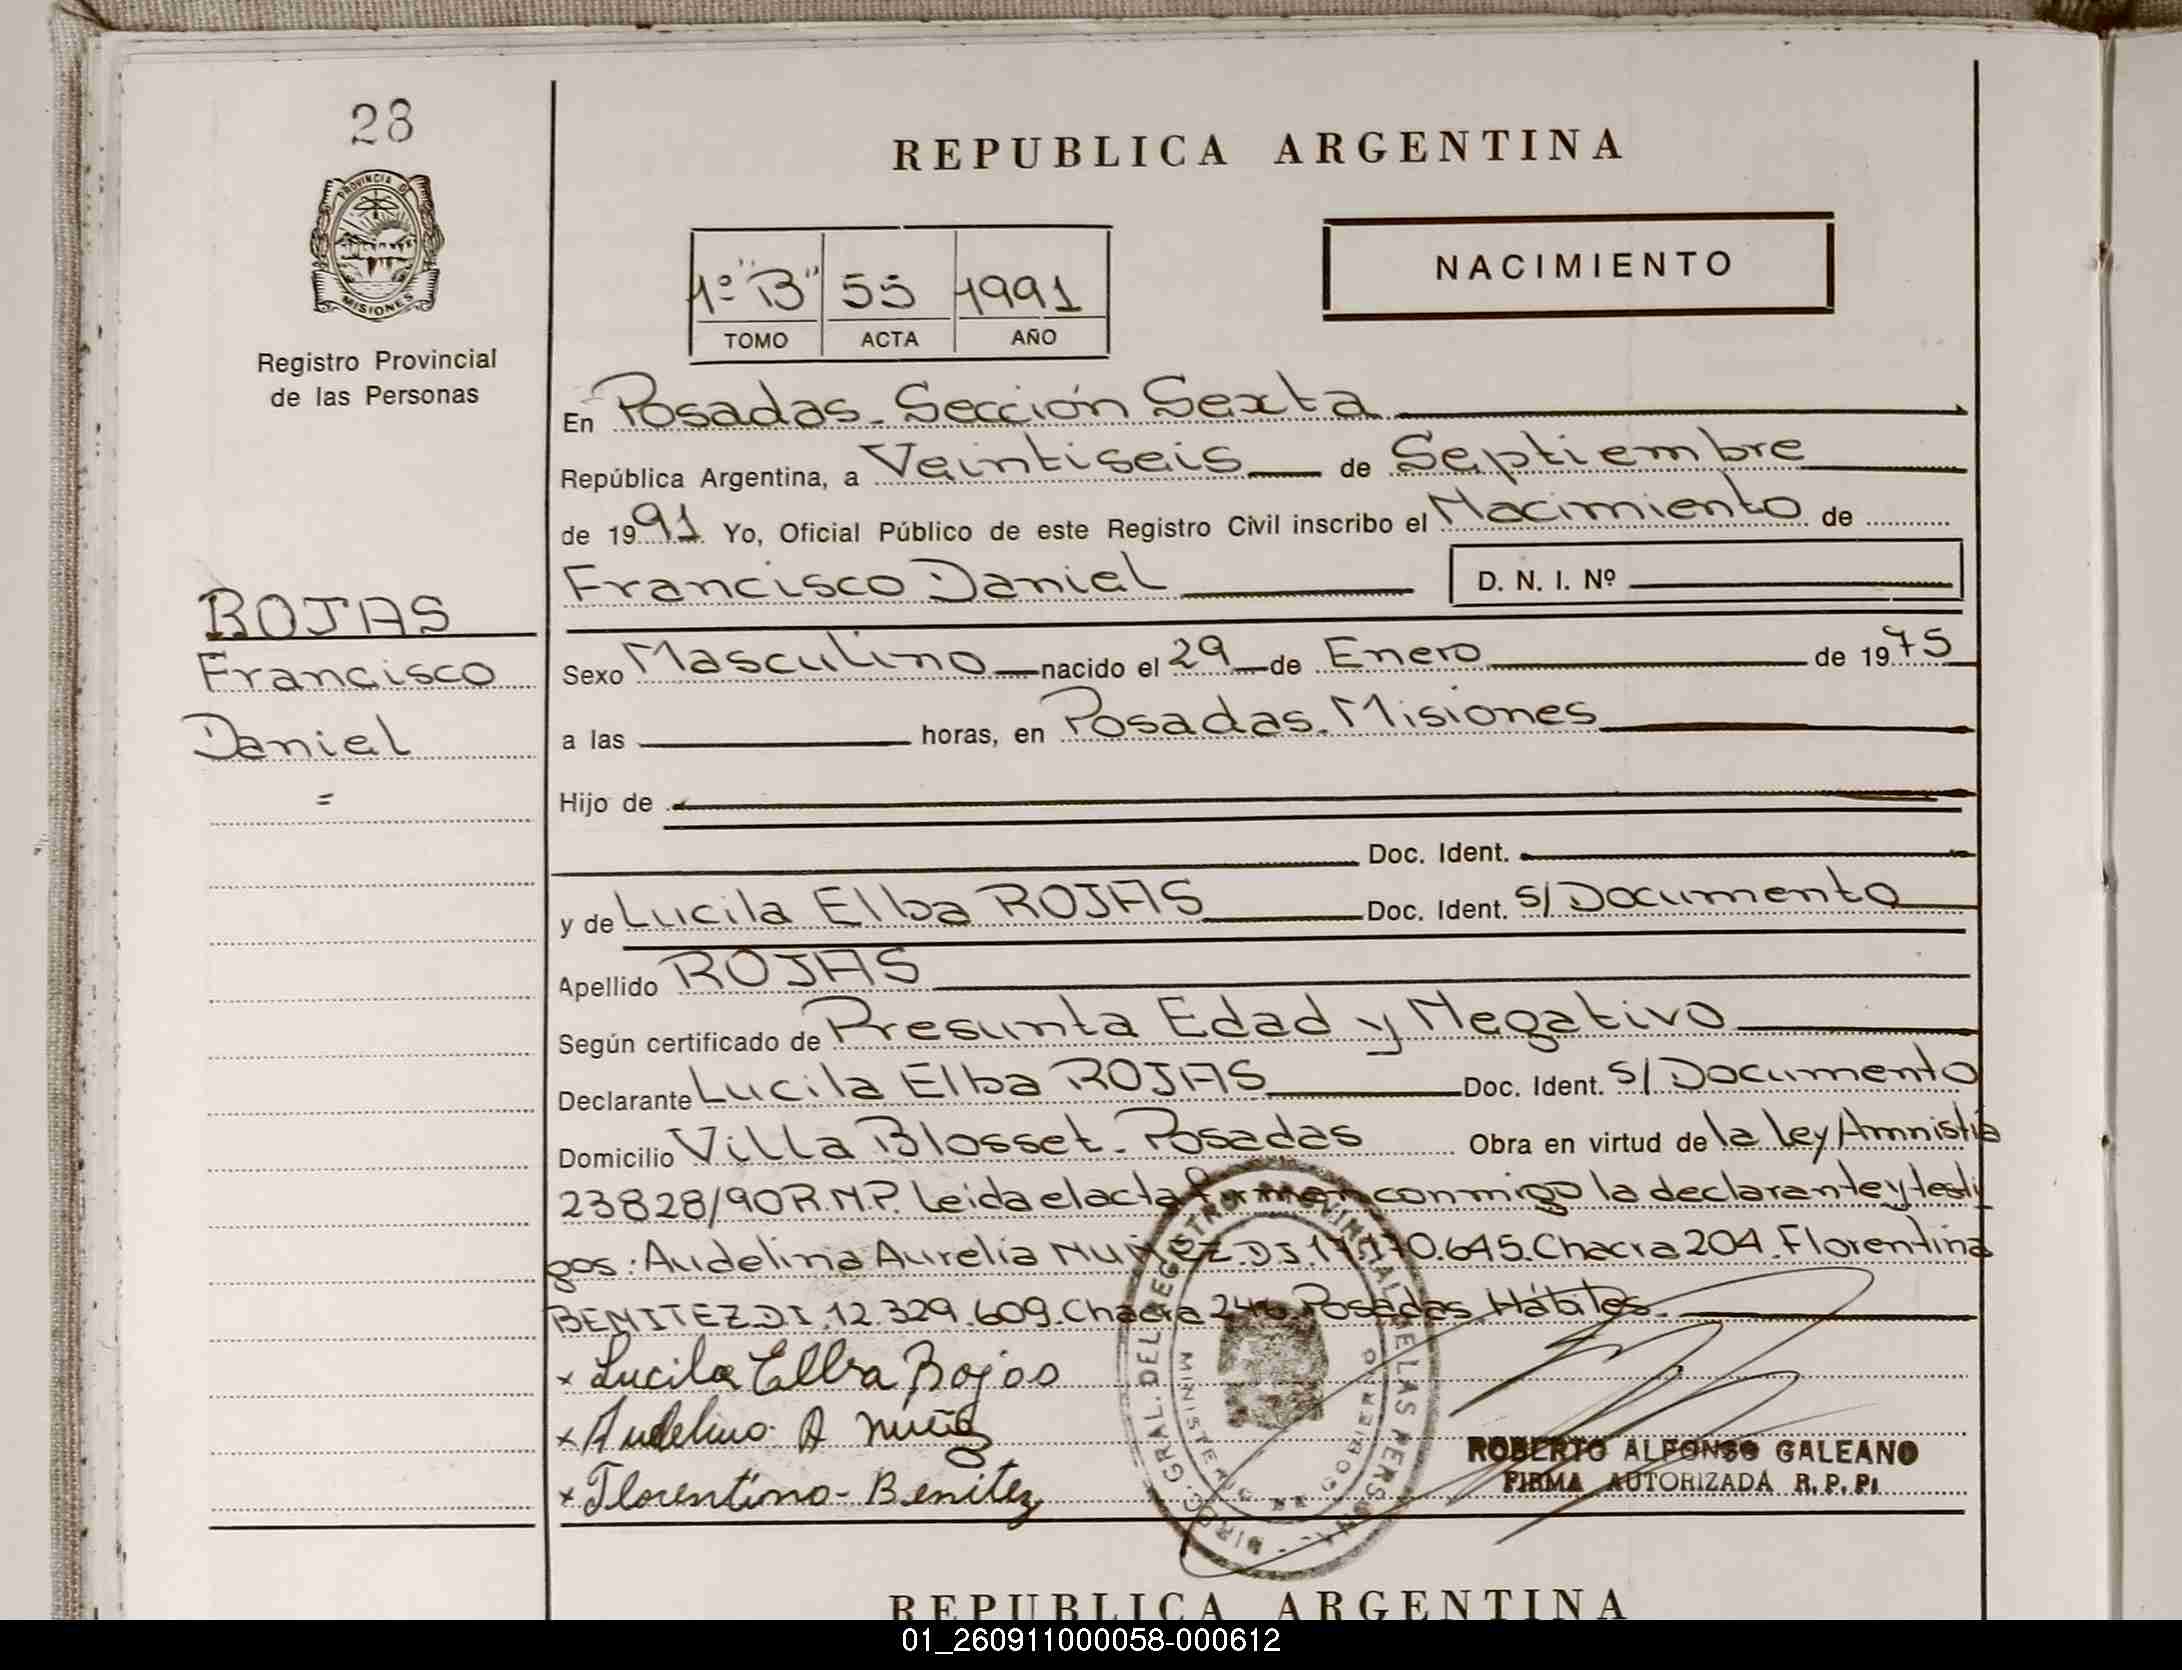 28
PROVINCIA DE
MISIONES
Registro Provincial
de las Personas
REPUBLICA ARGENTINA
1º "B" 55 1991
TOMO ACTA AÑO
NACIMIENTO
En Posadas. Sección Sexta
República Argentina, a Veintiseis de Septiembre
de 1991 Yo, Oficial Público de este Registro Civil inscribo el Nacimiento de
Francisco Daniel D. N. I. Nº
ROJAS
Francisco
Daniel
=
Sexo Masculino nacido el 29 de Enero de 1975
a las horas, en Posadas. Misiones
Hijo de
Doc. Ident.
y de Lucila Elba ROJAS Doc. Ident. S/Documento
Apellido ROJAS
Según certificado de Presunta Edad y Negativo
Declarante Lucila Elba ROJAS Doc. Ident. S/Documento
Domicilio Villa Blosset. Posadas Obra en virtud de la Ley Amnistia
23828/90 R.N.P. Leida el acta firman conmigo la declarante y testi
gos: Audelina Aurelia NUÑEZ. D.I. Chacra 204. Florentina
BENITEZ. D.I. 12.329.609. Chacra Posadas. Hábiles.
x Lucila Elba Rojas
x Audelina A Nuñez
x Florentina Benitez
DIRC. GRAL. DEL REGISTRO PROVINCIAL DE LAS PERSONAS
MINISTERIO DE GOBIERNO
ROBERTO ALFONSO GALEANO
FIRMA AUTORIZADA R. P. P.
REPUBLICA ARGENTINA
01_260911000058-000612